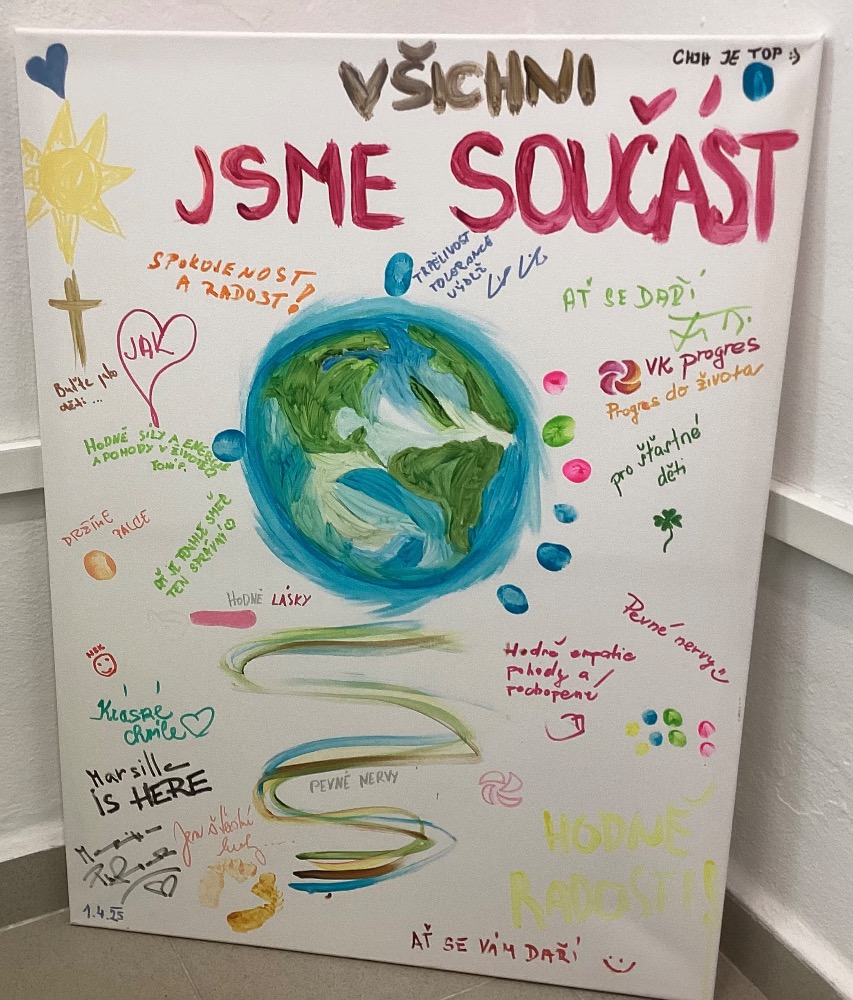 VŠICHNI
CHJH JE TOP :)
JSME SOUČÁST
SPOKOJENOST
A RADOST!
TRPĚLIVOST
TOLERANCE
VÝDRŽ
AŤ SE DAŘÍ
JAK
VK progres
Progres do života
Buďte jako
děti ...
HODNĚ SÍLY A ENERGIE
A POHODY V ŽIVOTĚ
pro šťastné
děti
DRŽÍME PALCE
AŤ JE TENHLE SMĚR
TEN SPRÁVNÝ
HODNĚ LÁSKY
Pevné nervy
Hodně empatie
pohody a
pochopení
Krásné
chvíle
Marsille
is HERE
PEVNÉ NERVY
Jen šťastné
HODNĚ
RADOSTI!
1.4.25
AŤ SE VÁM DAŘÍ